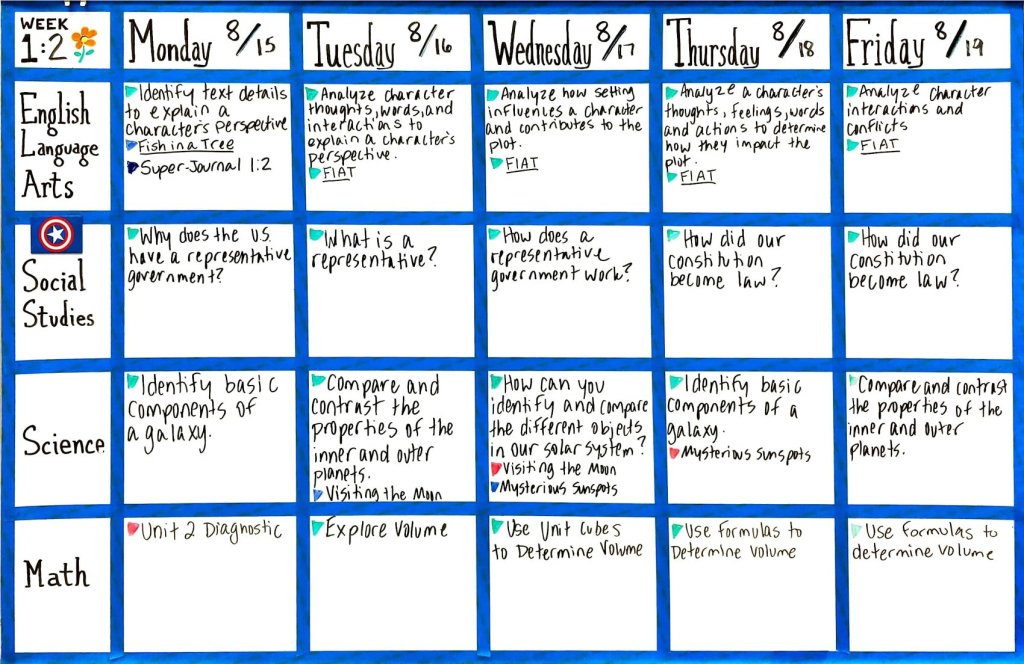 WEEK
1:2
Monday 8/15
Tuesday 8/16
Wednesday 8/17
Thursday 8/18
Friday 8/19
English
Language
Arts
Identify text details
to explain a
character's perspective
Fish in a Tree
Super-Journal 1:2
Analyze character
thoughts, words, and
interactions to
explain a character's
perspective.
FIAT
Analyze how setting
influences a character
and contributes to the
plot.
FIAT
Analyze a character's
thoughts, feelings, words
and actions to determine
how they impact the
plot.
FIAT
Analyze character
interactions and
conflicts
FIAT
Social
Studies
Why does the U.S.
have a representative
government?
What is a
representative?
How does a
representative
government work?
How did our
constitution
become law?
How did our
constitution
become law?
Science
Identify basic
components of
a galaxy.
Compare and
contrast the
properties of the
inner and outer
planets.
Visiting the Moon
How can you
identify and compare
the different objects
in our solar system?
Visiting the Moon
Mysterious Sunspots
Identify basic
components of a
galaxy.
Mysterious Sunspots
Compare and contrast
the properties of the
inner and outer
planets.
Math
Unit 2 Diagnostic
Explore Volume
Use Unit Cubes
to Determine Volume
Use Formulas to
Determine Volume
Use Formulas to
determine volume